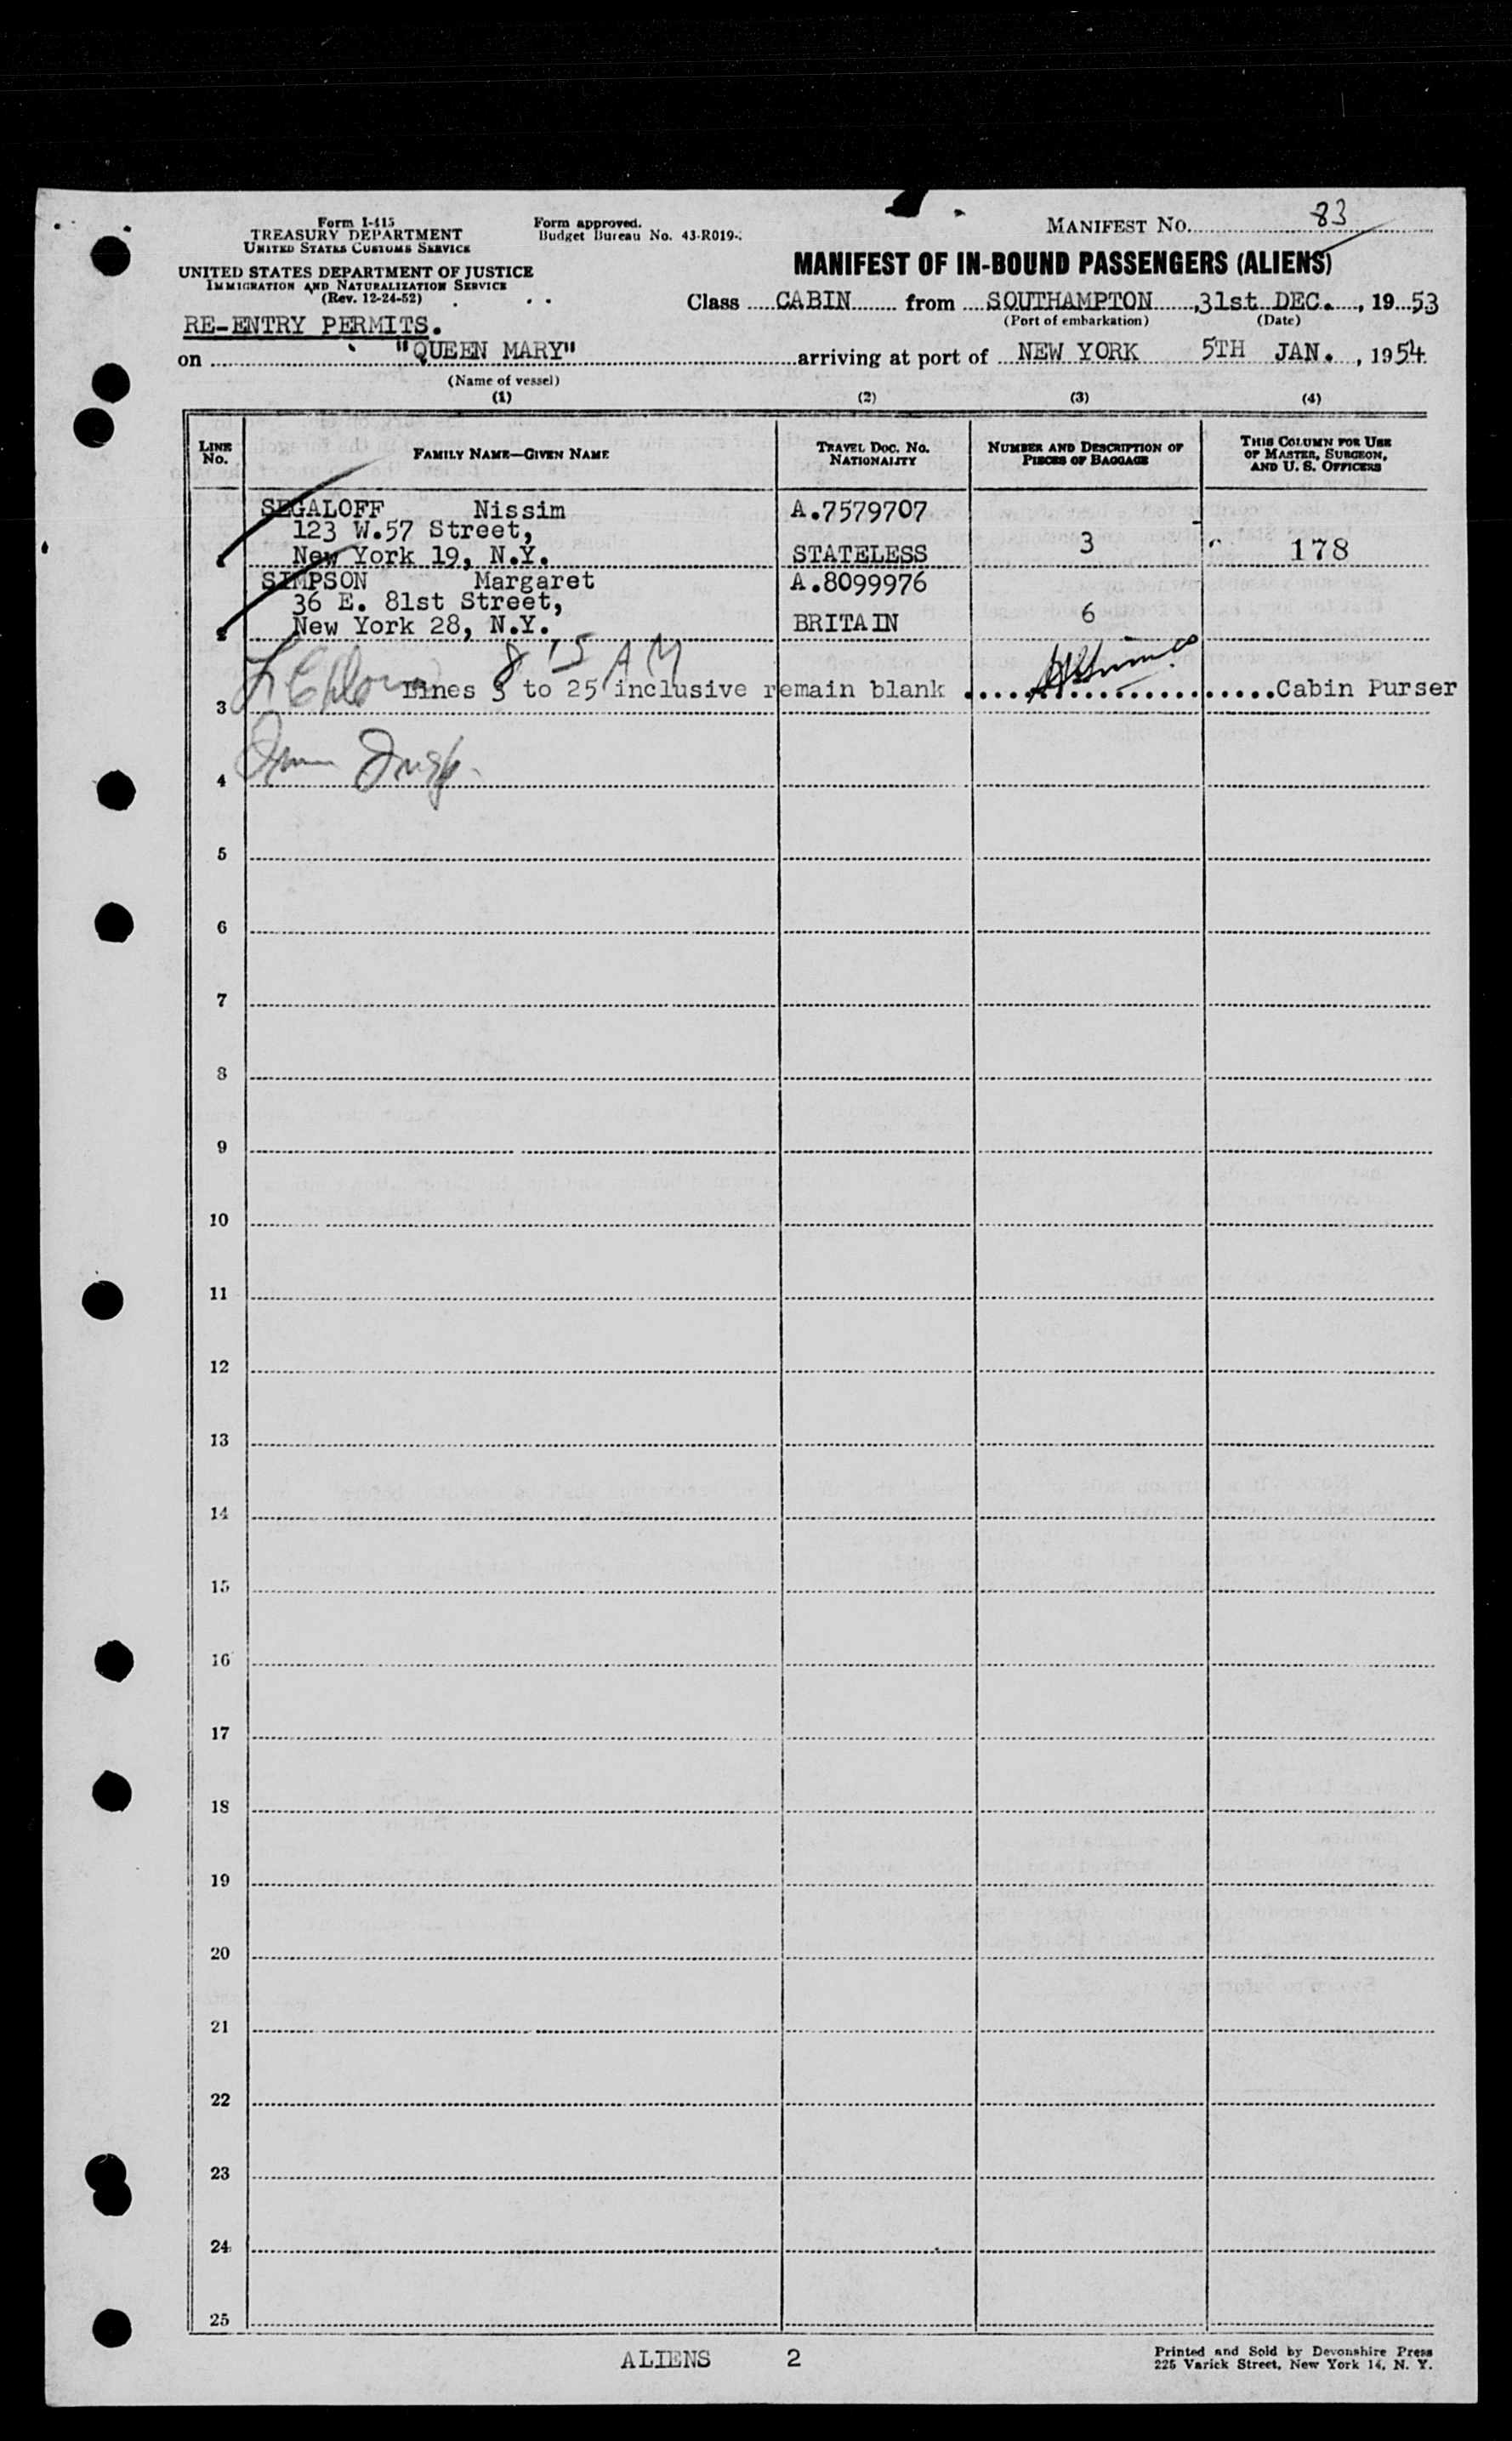 Form I-415
TREASURY DEPARTMENT
UNITED STATES CUSTOMS SERVICE
UNITED STATES DEPARTMENT OF JUSTICE
IMMIGRATION AND NATURALIZATION SERVICE
(Rev. 12-24-52)
Form approved.
Budget Bureau No. 43-R019-
MANIFEST NO. 83
MANIFEST OF IN-BOUND PASSENGERS (ALIENS)
Class CABIN from SOUTHAMPTON, 31st DEC., 1953
(Port of embarkation) (Date)
RE-ENTRY PERMITS.
on "QUEEN MARY" arriving at port of NEW YORK 5TH JAN., 1954
(Name of vessel)
(1) (2) (3) (4)
LINE No. FAMILY NAME—GIVEN NAME TRAVEL DOC. NO. NATIONALITY NUMBER AND DESCRIPTION OF PIECES OF BAGGAGE THIS COLUMN FOR USE OF MASTER, SURGEON, AND U. S. OFFICERS
SEGALOFF Nissim A.7579707
123 W.57 Street,
New York 19, N.Y. STATELESS 3 178
SIMPSON Margaret A.8099976
36 E. 81st Street,
2 New York 28, N.Y. BRITAIN 6
8 15 AM
3 Lines 3 to 25 inclusive remain blank Cabin Purser
4
5
6
7
8
9
10
11
12
13
14
15
16
17
18
19
20
21
22
23
24
25
ALIENS 2
Printed and Sold by Devonshire Press
225 Varick Street, New York 14, N. Y.